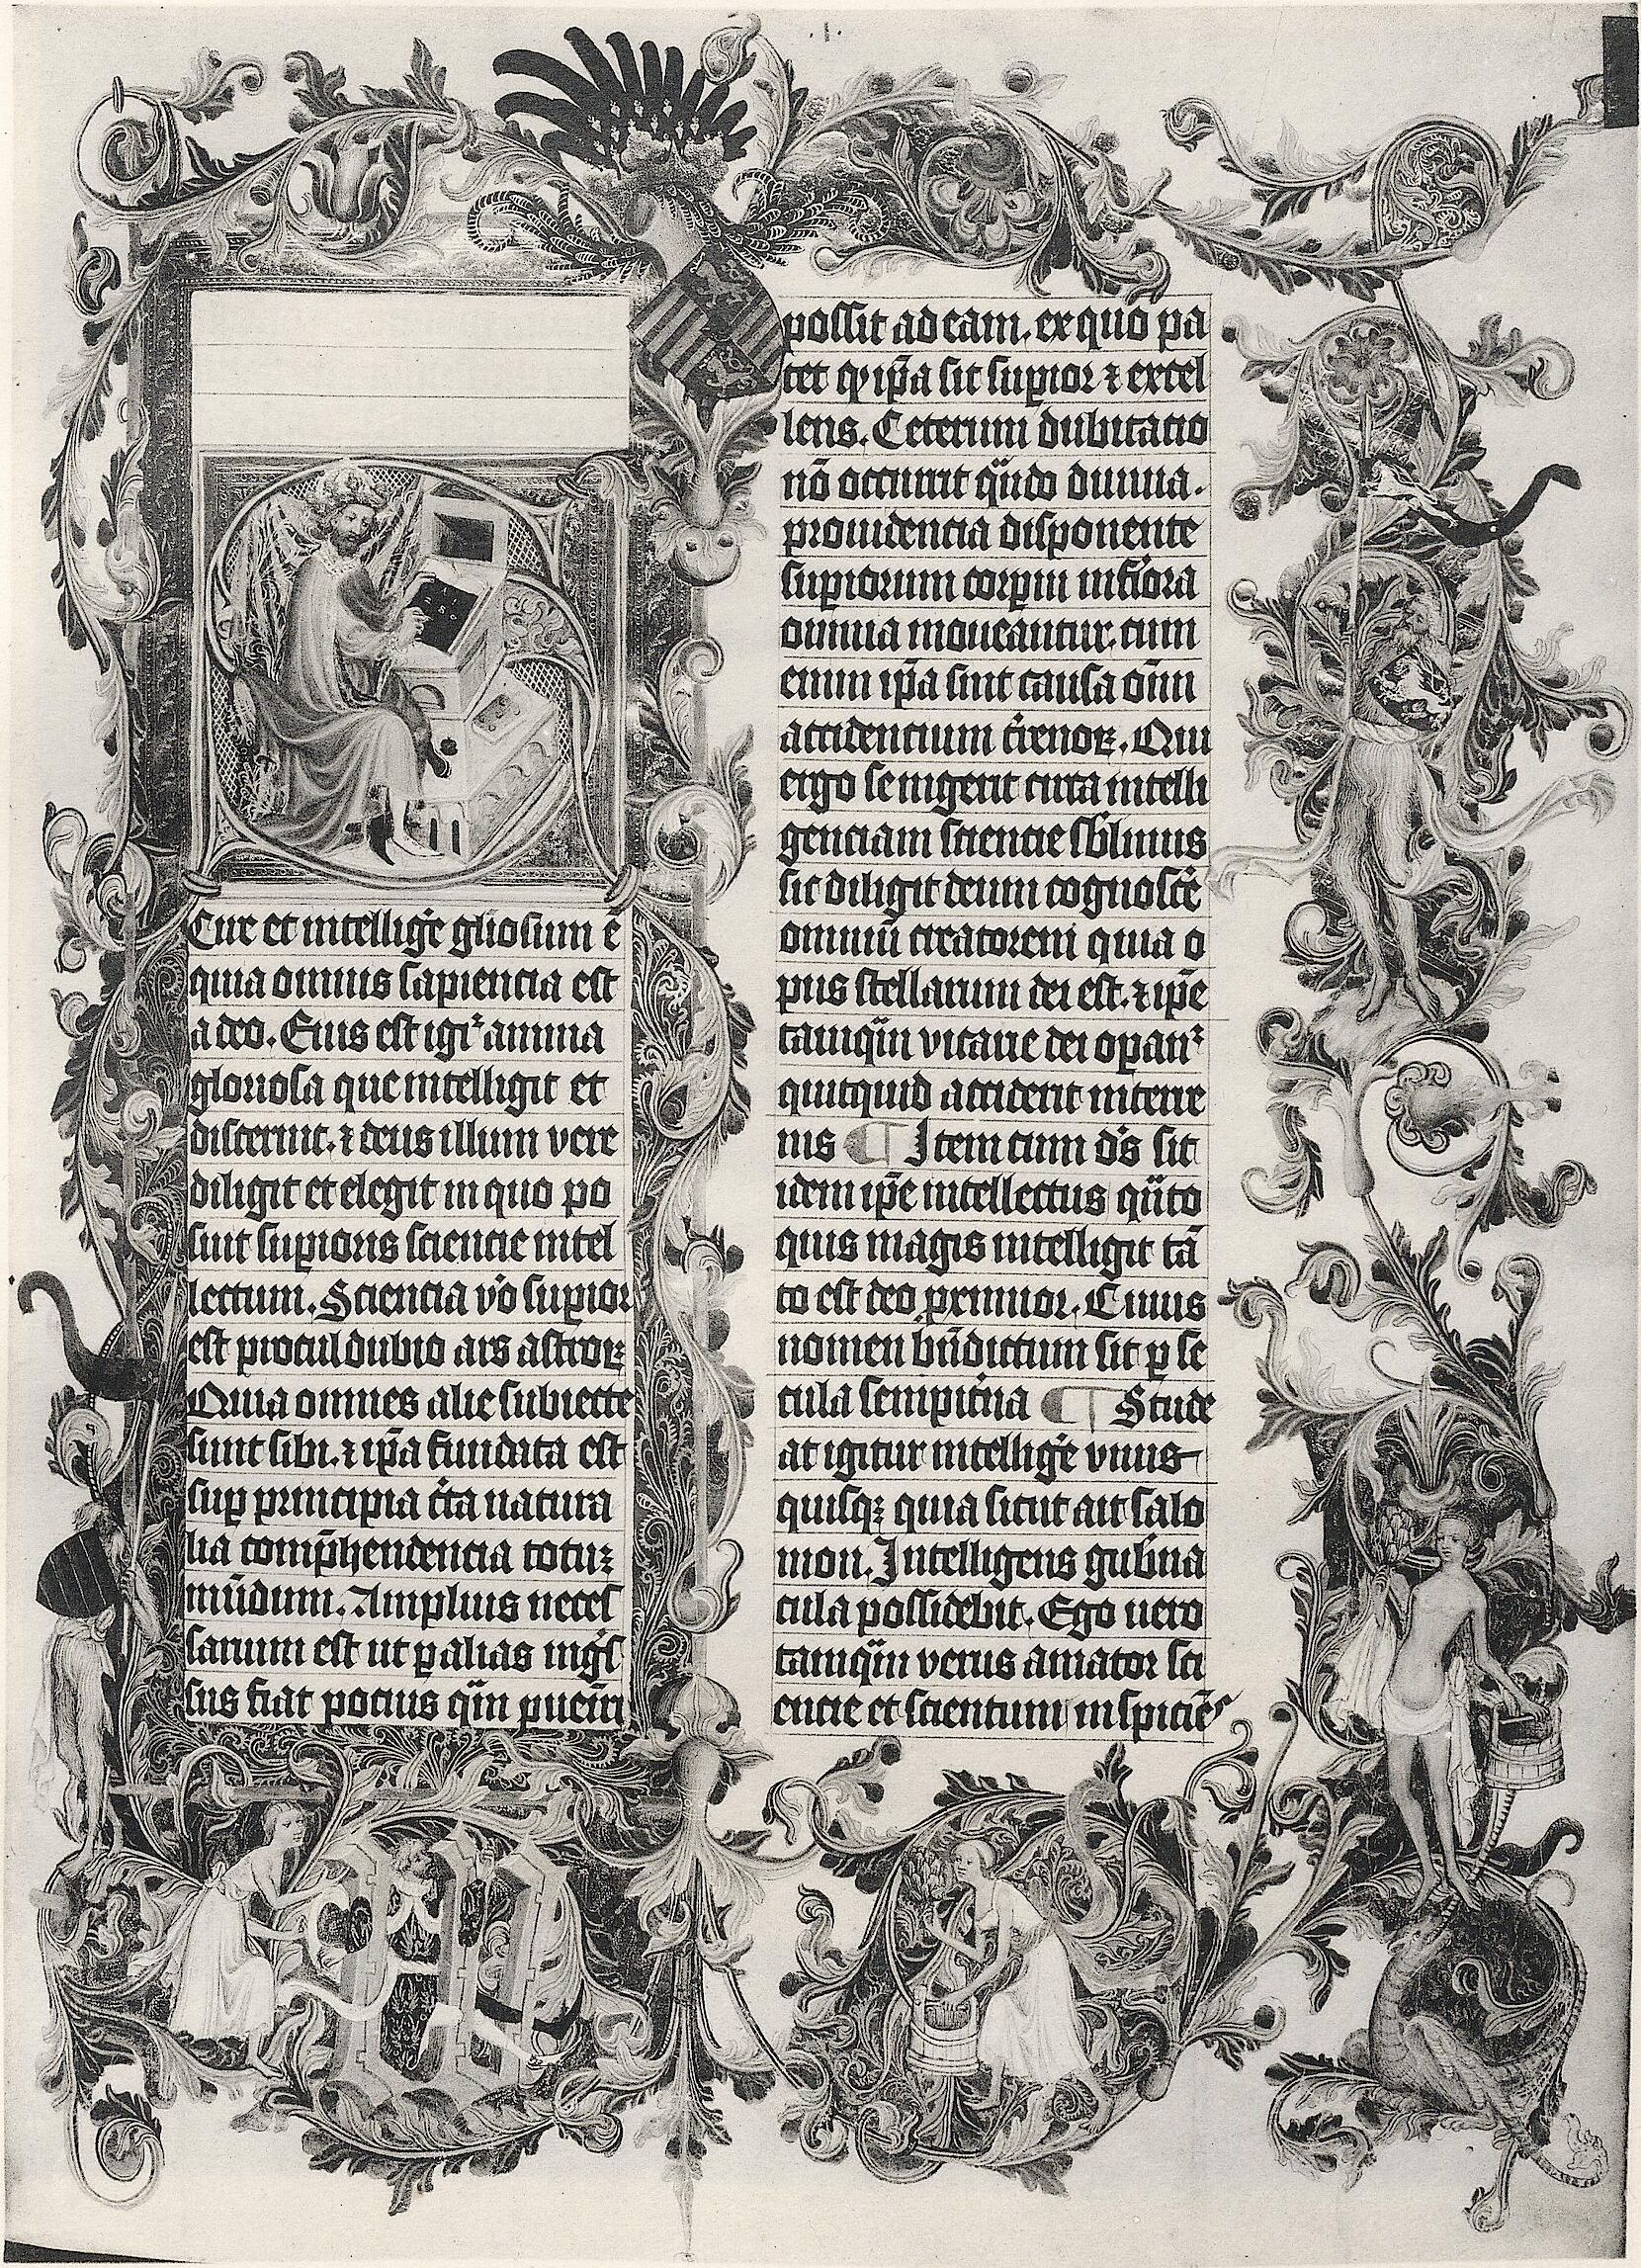 .1.
Cire et intellige᷑ gl̅iosum ē
quia omnis sapiencia est
a deo. Eius est igi᷑ anima
gloriosa que intelligit et
discernit. ⁊ deus illum vere
diligit et elegit in quo po
suit sup̱ioris sciencie intel
lectum. Sciencia v̊o sup̱ior
est procul dubio ars astroꝝ
Quia omnes alie subiecte
sunt sibi. ⁊ ip̄a fundata est
suꝑ principia c̄ta natura
lia comp̄hendencia totuꝫ
mūdum. Amplius neces
sarium est ut ꝑ alias ingͥs
sus fiat pocius qͣ̄m
possit ad eam. ex quo pa
tet ꝙ ip̄a sit suꝑior ⁊ excel
lens. Ceterum dubitacio
nō occurrit qͣ̄do diuina
prouidencia disponente
suꝑiorum corꝑū inf̄iora
omnia moueantur. cum
enim ip̄a sint causa oīm
accidencium t̄renoꝝ. Qui
ergo se ingerit circa intelli
genciam sciencie sb̄limius
sic diligit deum cognosce᷑
omniū creatorem quia o
pus stellarum dei est. ⁊ ip̄e
tamqͣ̄m vicarie dei oꝑan᷑
quicquid acciderit in terre
nis ¶ Item cum d̄s sit
idem ip̄e intellectus qͣ̄to
quis magis intelligit tā
to est deo ꝓximior. Cuius
nomen bn̄dictum sit ꝑ se
cula sempit̄na ¶ Stude
at igitur intellige᷑ vnus
quisqꝫ quia sicut ait salo
mon. Intelligens gub̄na
cula possidebit. Ego uero
tamqͣ̄m verus amator sci
encie et scientum inspicie᷑s